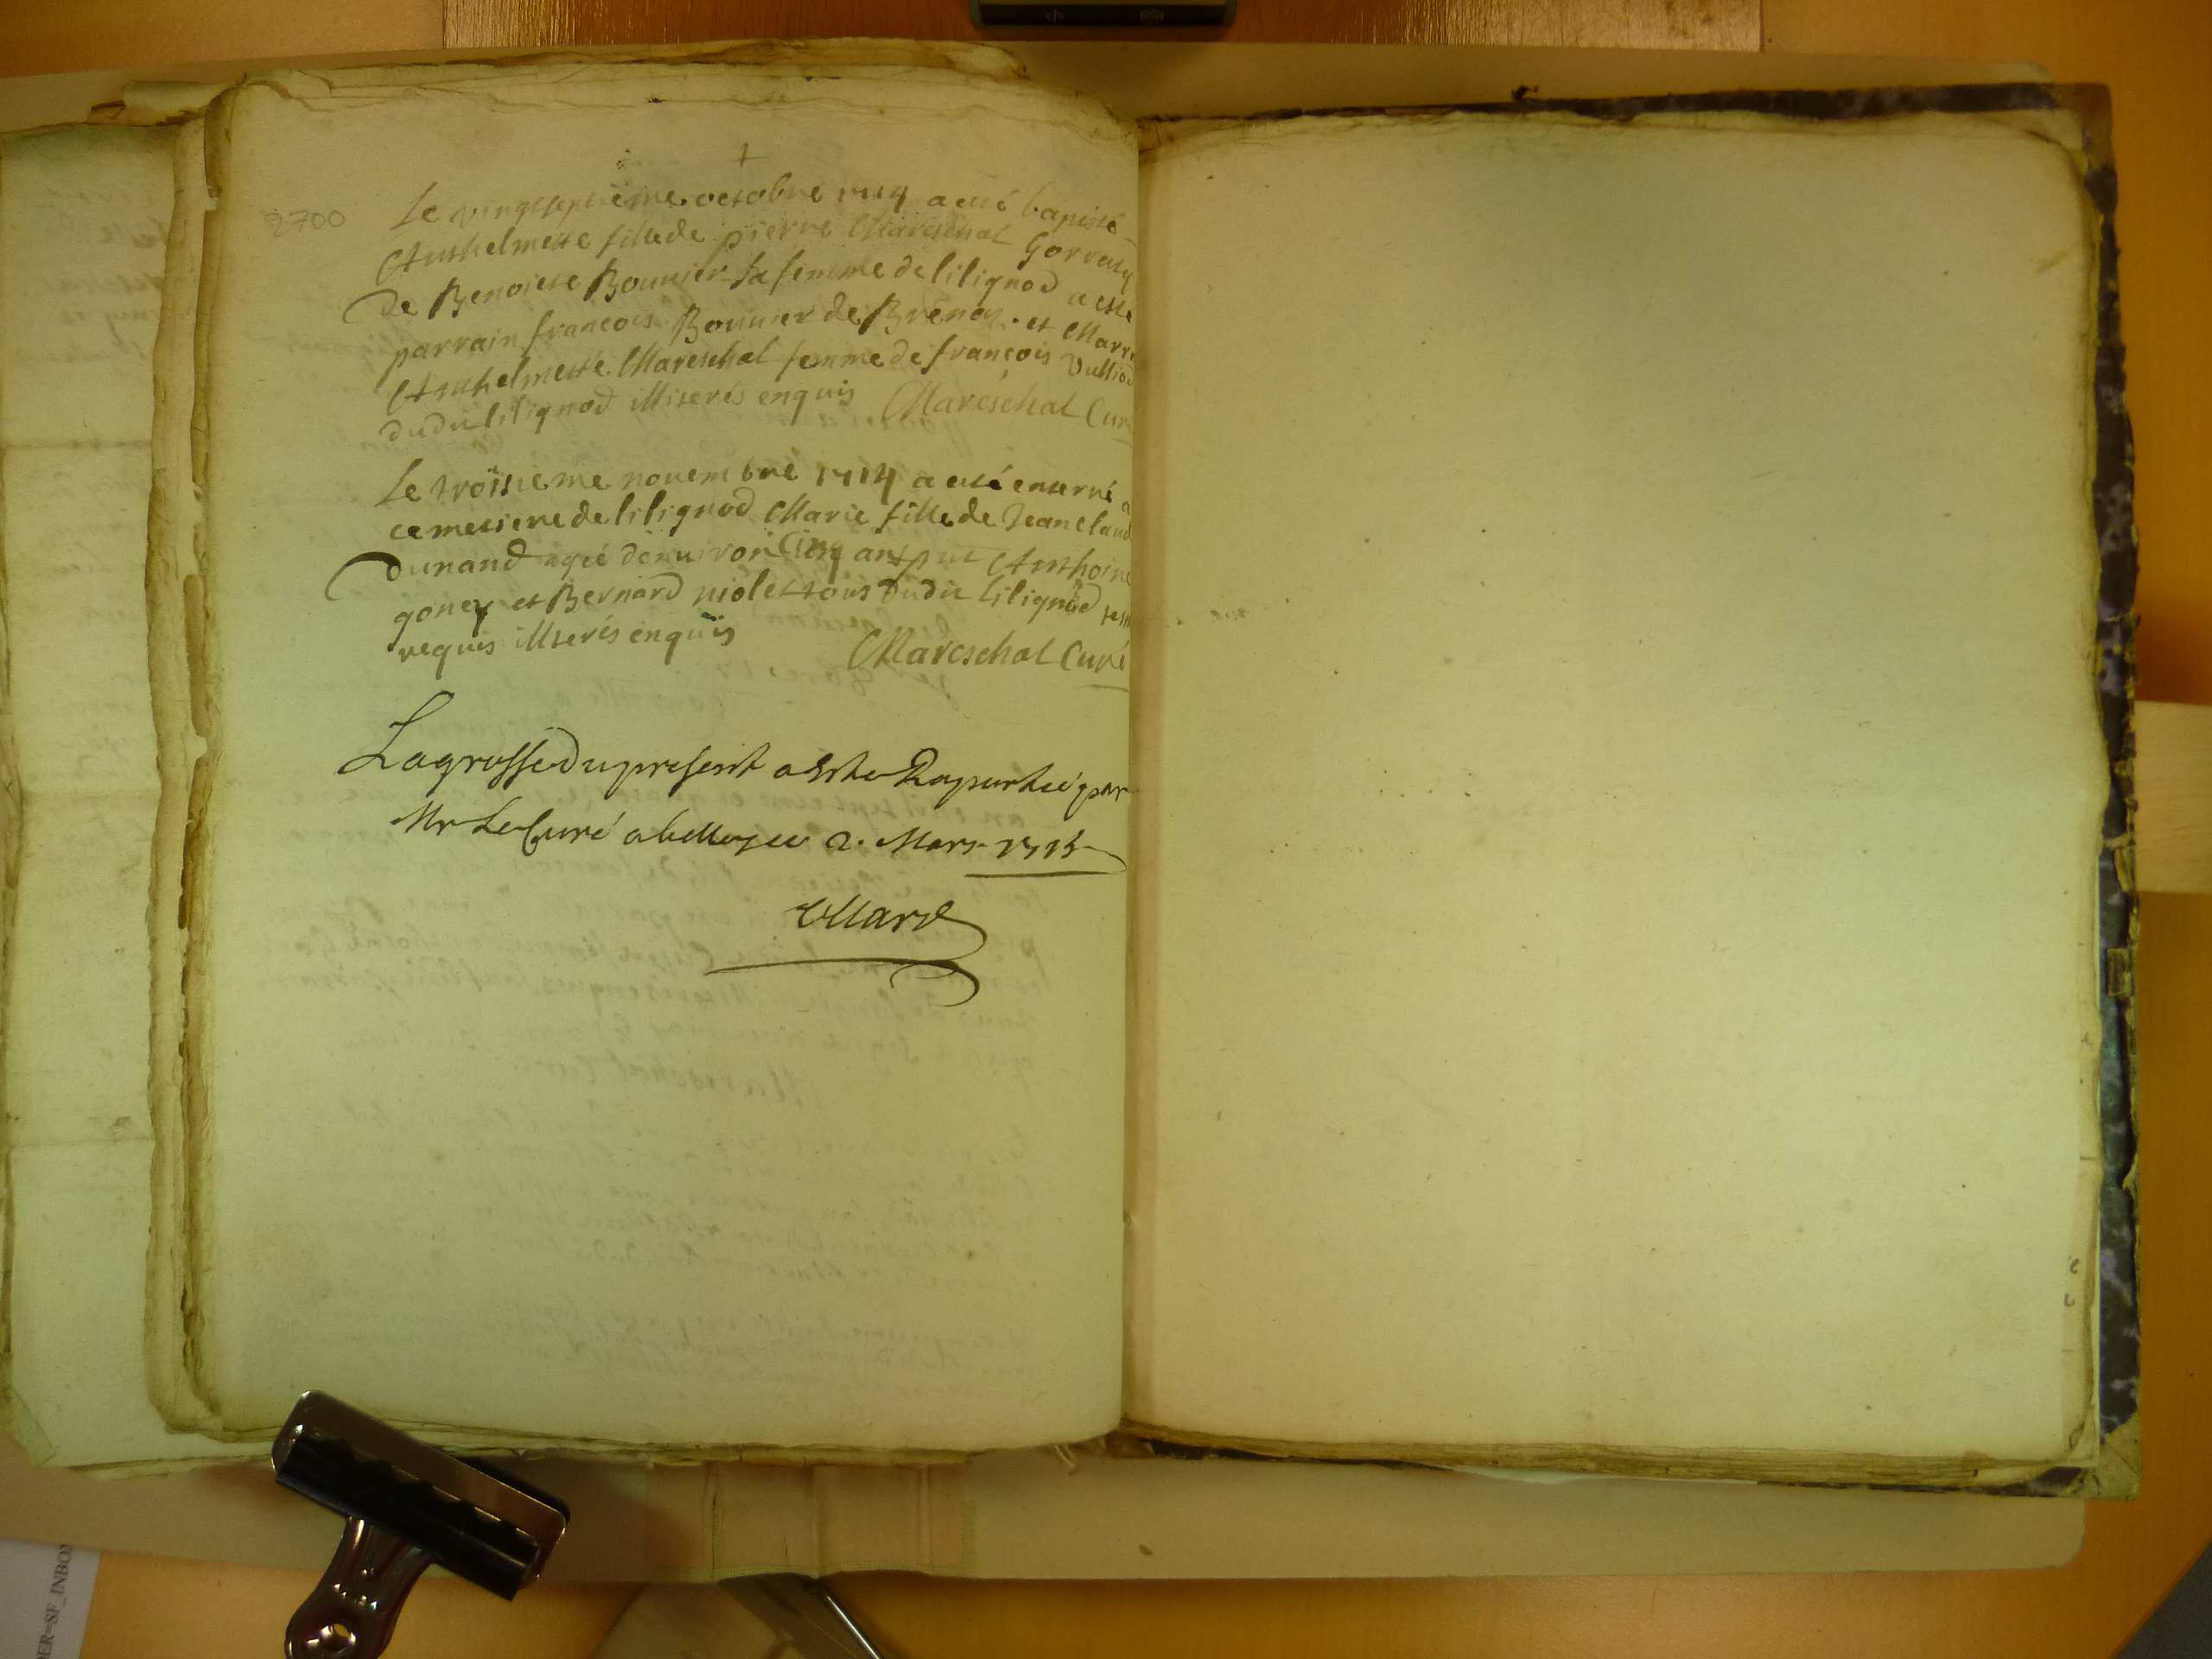 2700
Le vingtseptieme octobre 1714 a esté baptisé
Anthelmette fille de pierre Mareschal Gorraty
de Benoiste Bonnier sa femme de lilignod a esté
parrain françois Bonnier de Brenaz et Marr
Anthelmette Mareschal femme de françois Vulliod
dudit lilignod illiterés enquis Mareschal Cur
Le troisieme novembre 1714 a esté enterré a
cemetiere de lilignod Marie fille de Jean Claud
Dunand agée d'enuiron Cinq ans put Anthoine
goney et Bernard violet tous dudit lilignod tesm
requis illiterés enquis Mareschal Curé
La grosse du present a este Raportée par
Mr Le Curé a belley ce 2. Mars 1715
DER=SF_INBOX